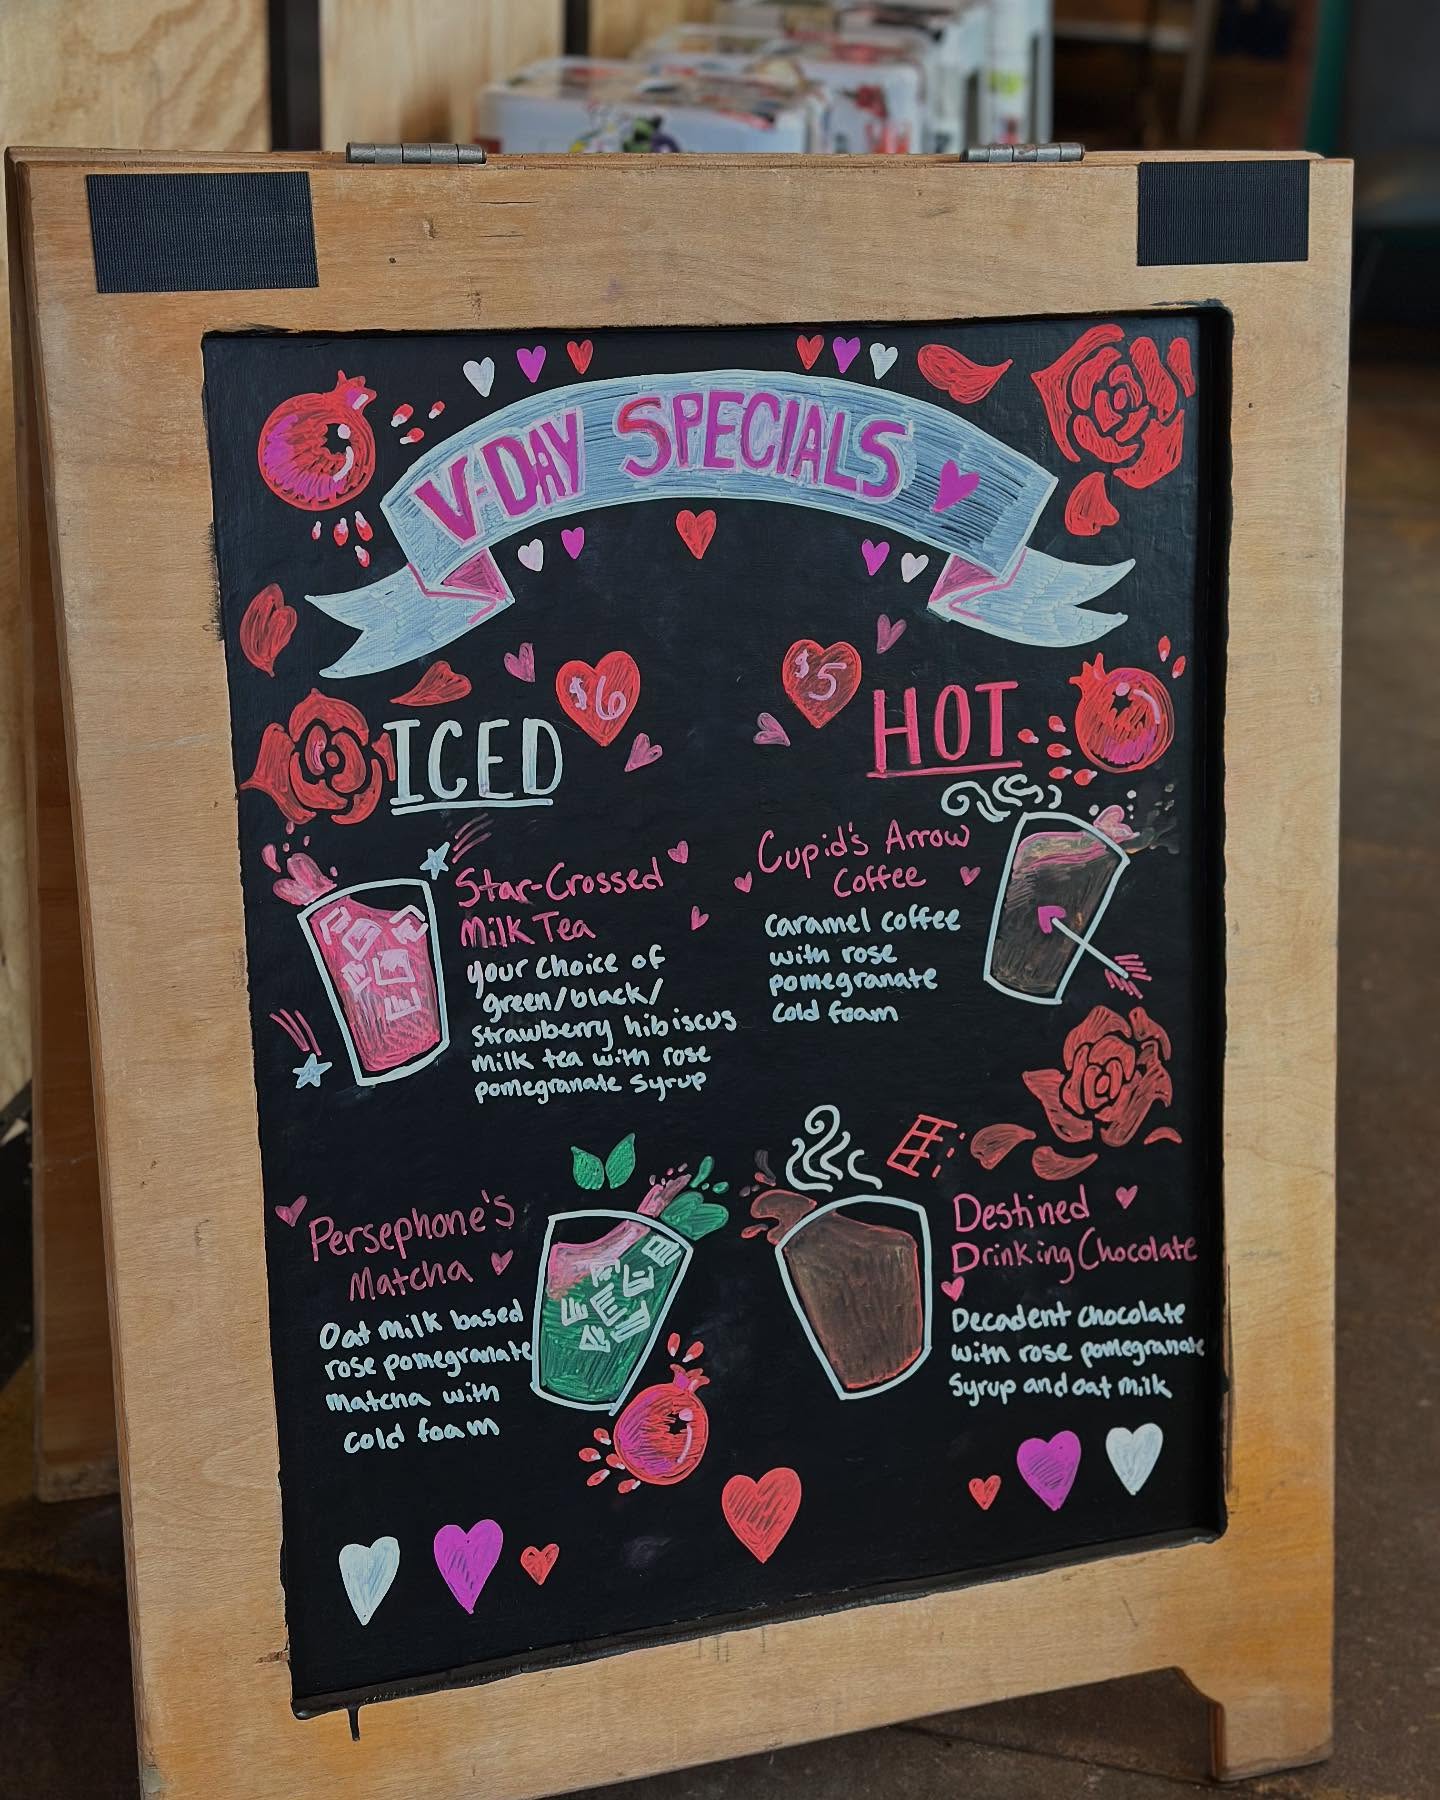 V-DAY SPECIALS
$6
ICED
Star-Crossed
Milk Tea
your choice of
green/black/
strawberry hibiscus
milk tea with rose
pomegranate syrup
Persephone's
Matcha
Oat milk based
rose pomegranate
matcha with
cold foam
$5
HOT
Cupid's Arrow
Coffee
Caramel coffee
with rose
pomegranate
cold foam
Destined
Drinking Chocolate
Decadent chocolate
with rose pomegranate
syrup and oat milk